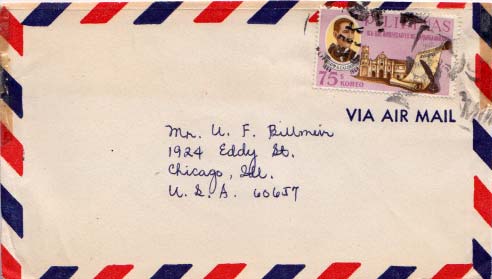 PILIPINAS
75s
KOREO
VIA AIR MAIL
Mr. U. F. Billmeir
1924 Eddy St.
Chicago, Ill.
U. S. A. 60657